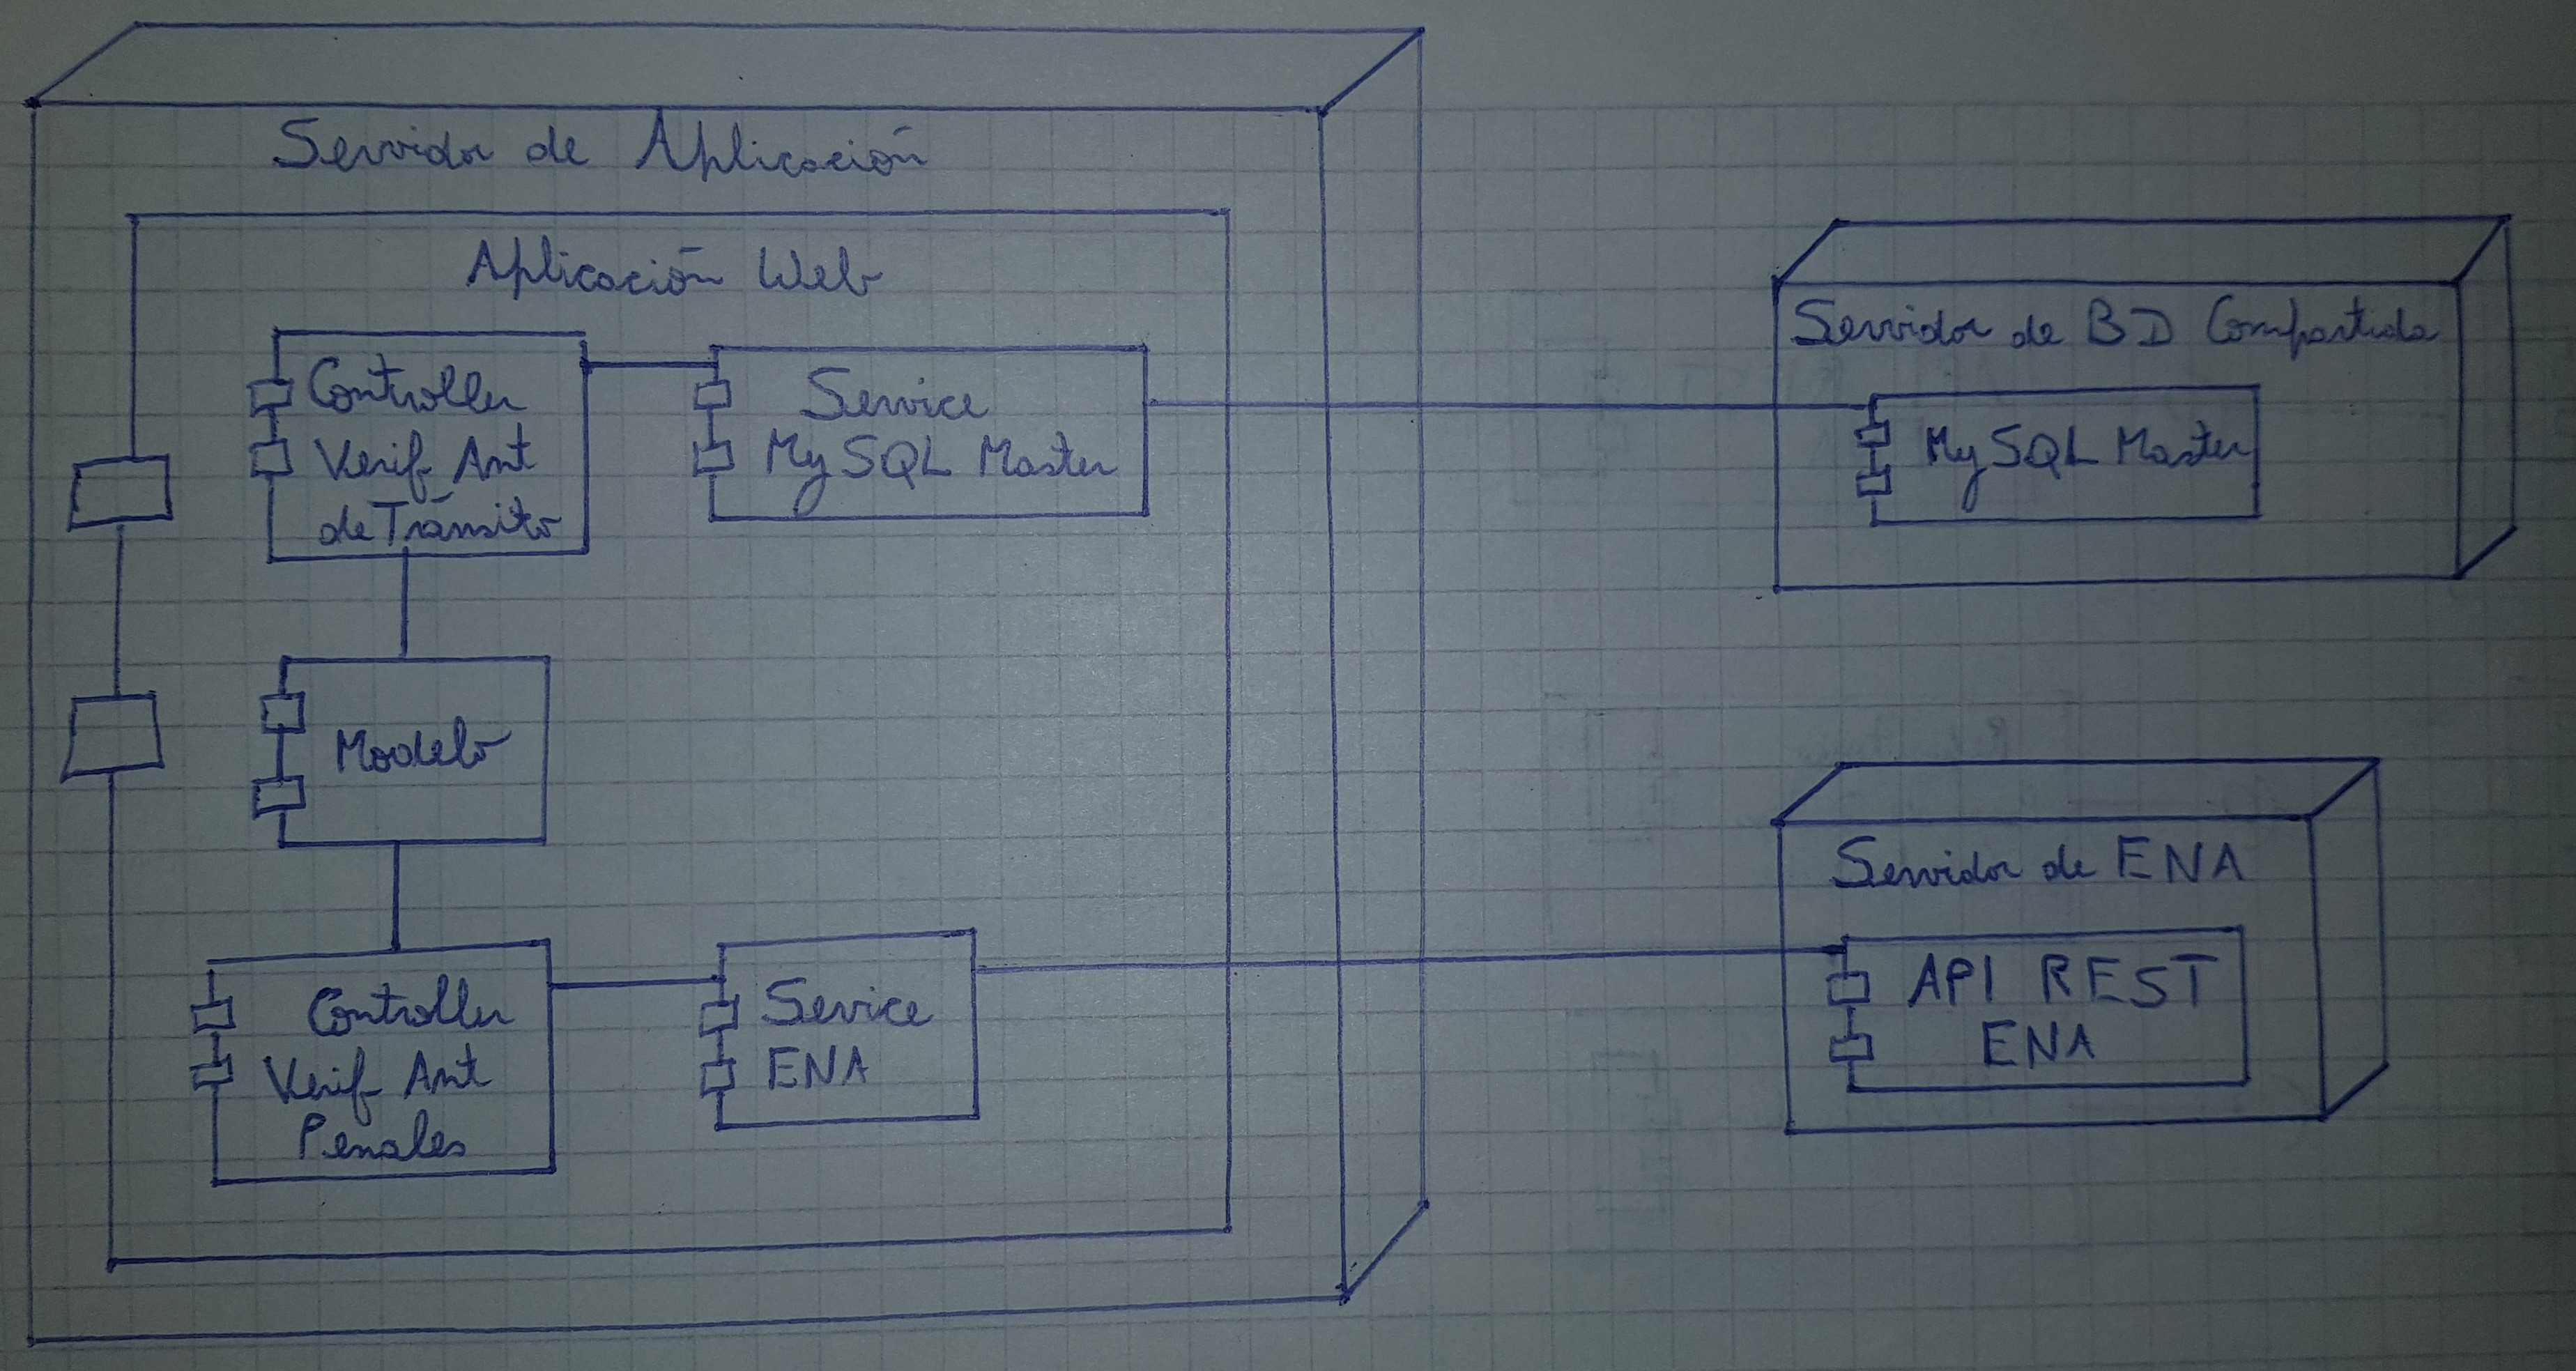 Servidor de Aplicación
Aplicación Web
Controller
Verif Ant
de Tránsito
Service
MySQL Master
Modelo
Controller
Verif Ant
Penales
Sevice
ENA
Servidor de BD Compartida
MySQL Master
Servidor de ENA
API REST
ENA